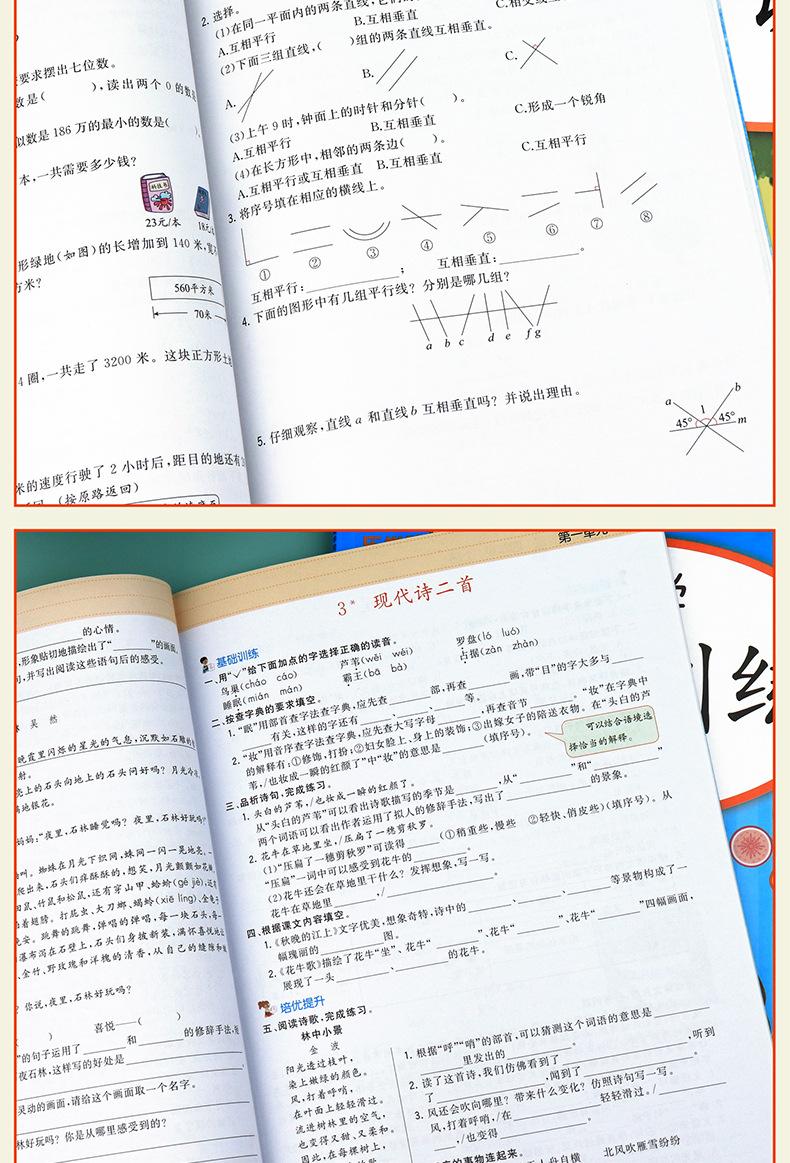 要求摆出七位数。
数是(　　),读出两个0的数
似数是186万的最小的数是(
本,一共需要多少钱?
科技书
23元/本
18元/
形绿地(如图)的长增加到140米,宽不
方米?
560平方米
70米
4圈,一共走了3200米。这块正方形土地
米的速度行驶了2小时后,距目的地还有
(按原路返回)
2.选择。
(1)在同一平面内的两条直线,
A.互相平行
B.互相垂直
(2)下面三组直线,(　　)组的两条直线互相垂直。
A.
B.
C.
(3)上午9时,钟面上的时针和分针(　　)。
A.互相平行
B.互相垂直
C.形成一个锐角
(4)在长方形中,相邻的两条边(　　)。
A.互相平行或互相垂直
B.互相垂直
C.互相平行
3.将序号填在相应的横线上。
①
②
③
④
⑤
⑥
⑦
⑧
互相平行:________;
互相垂直:________。
4.下面的图形中有几组平行线?分别是哪几组?
a b c d e f g
5.仔细观察,直线a和直线b互相垂直吗?并说出理由。
a
b
1
45°
45°
m
的心情。
,形象贴切地描绘出了“______”的画面,
句,并写出阅读这些语句后的感受。
吴 然
晚霞里闪烁的星光的气息,沉默如石雕的
射。
亮上的石头向地上的石头问好吗?月光冷冰
满地银花。
妈妈:“夜里,石林睡觉吗?夜里,石林好玩吗?
蜘蛛在月光下织网,蛛网一闪一晃地亮、
爬出来,石头们痒酥酥的,想笑,月光颤颤如花
田鼠、竹鼠和松鼠,还有穿山甲、蛤蚧(gé jiè),还有
着翅膀。打屁虫、大刀螂、蝎蛉(xiē líng)、金龟子
晚安。跳舞的跳舞,弹唱的弹唱,每一块石头,每一
瀑布泻在石壁上,石头们身披新装,满怀喜悦地让
、金竹、野玫瑰和洋槐的清香,从自己的缝隙和
?你说,夜里,石林好玩吗?
(　　)　喜悦——(　　)
”的句子运用了______和______的修辞手法,
夜石林,这样写的好处是
灵动的画面,请给这个画面取一个名字。
林好玩吗?你是从哪里感受到的?
第一单元
3* 现代诗二首
基础训练
一、用“✓”给下面加点的字选择正确的读音。
鸟巢(cháo　cáo)
芦苇(wěi　wéi)
罗盘(ló　luó)
睡眠(mián　mán)
霸王(bā　bà)
占据(zàn　zhàn)
二、按查字典的要求填空。
1.“眠”用部首查字法查字典,应先查______部,再查______画,带“目”的字大多与______
______有关,这样的字还有______、______等。
2.“妆”用音序查字法查字典,应先查大写字母______,再查音节______。“妆”在字典中
的解释有:①修饰,打扮;②妇女脸上、身上的装饰;③出嫁女子的陪送衣物。在“头白的芦
苇,/也妆成一瞬的红颜了”中“妆”的意思是______(填序号)。
可以结合语境选
择恰当的解释。
三、品析诗句,完成练习。
1.头白的芦苇,/也妆成一瞬的红颜了。
从“头白的芦苇”可以看出诗歌描写的季节是______,从“______”和“______”
两个词语可以看出作者运用了拟人的修辞手法,写出了____________的景象。
2.花牛在草地里坐,/压扁了一穗剪秋罗。
(1)“压扁了一穗剪秋罗”可读得______(①稍重些,慢些　②轻快、俏皮些)(填序号)。从
“压扁”一词中可以感受到花牛的____________。
(2)花牛还会在草地里干什么?发挥想象,写一写。
花牛在草地里______,/____________。
四、根据课文内容填空。
1.《秋晚的江上》文字优美,想象奇特,诗中的______、______、______、______等景物构成了一
幅瑰丽的____________图。
2.《花牛歌》描绘了花牛“坐”、花牛“______”、花牛“______”、花牛“______”四幅画面,
展现了一头______、______的花牛。
培优提升
五、阅读诗歌,完成练习。
林中小景
金 波
阳光透过枝叶,
染上嫩绿的颜色。
风,打着呼哨,
在叶面上轻轻滑过。
流进树林里的空气,
也变得又甜、又柔和。
因此,在每棵树上,
1.根据“呼”“哨”的部首,可以猜测这个词语的意思是______
______里发出的______。
2.读了这首诗,我们仿佛看到了____________,听到
了____________,闻到了____________。
3.风还会吹向哪里?带来什么变化?仿照诗句写一写。
风,打着呼哨,/在____________轻轻滑过。/______
______,/也变得____________。
的事物连起来。
北风吹雁雪纷纷